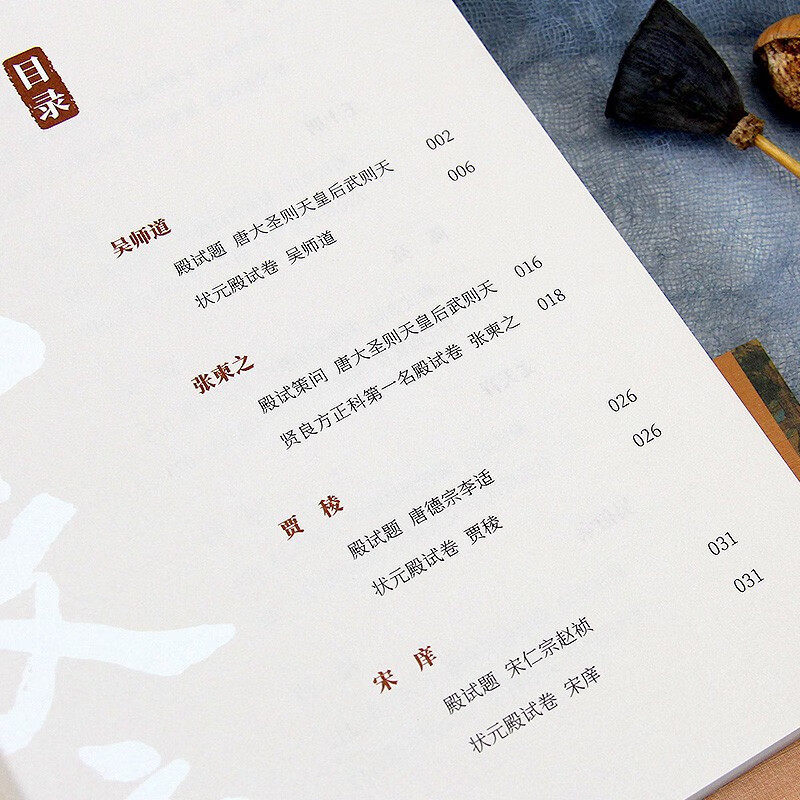 目录
吴师道
殿试题 唐大圣则天皇后武则天 002
状元殿试卷 吴师道 006
张柬之
殿试策问 唐大圣则天皇后武则天 016
贤良方正科第一名殿试卷 张柬之 018
贾 稜
殿试题 唐德宗李适 026
状元殿试卷 贾稜 026
宋 庠
殿试题 宋仁宗赵祯 031
状元殿试卷 宋庠 031